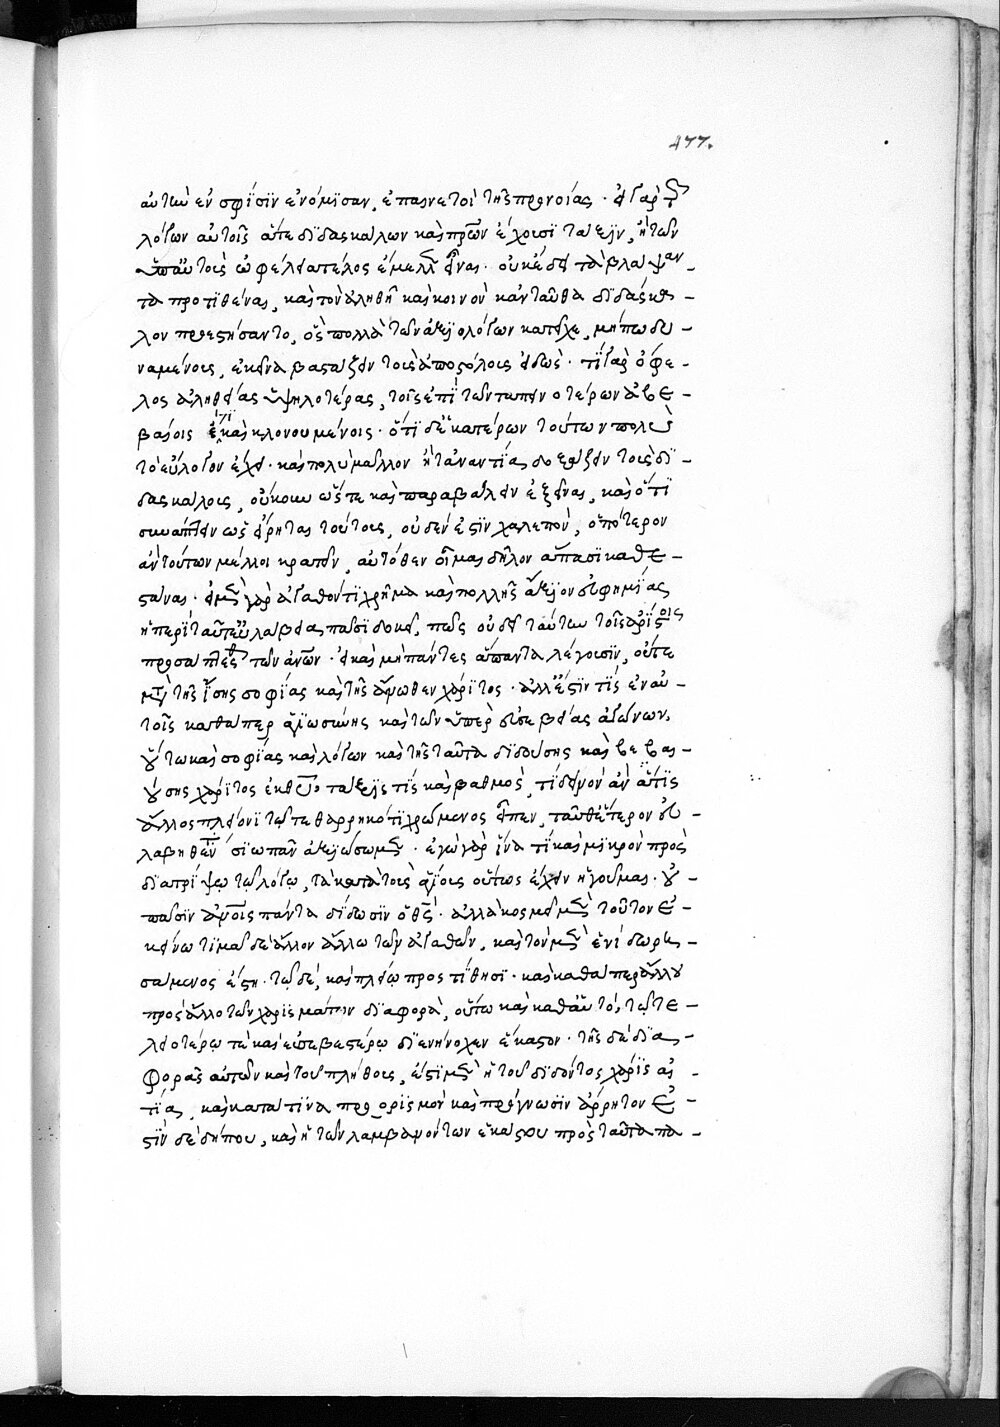 477.
αὐτῶ ἐν σφίσιν ἐνόμισαν, ἐπαινετοὶ τῆς προνοίας. εἰ γὰρ
λόγων αὐτοῖς ἅτε διδασκάλων καὶ πρώων ἔχουσι τάξιν, ἢ τῶν
ὑπ' αὐτοὺς ὠφέλεια τέλος ἔμελλεν εἶναι. οὐκ ἔδει τὰ βλάψαν-
τα προτιθέναι, καὶ τὸν ἀληθῆ καὶ κοινὸν κἀνταῦθα διδάσκα-
λον προεστήσαντο, ὃς πολλὰ τῶν ἀξιολόγων κατεῖχε, μήπω δυ-
ναμένοις, ἐκεῖνα βαστάζειν τοῖς ἀποστόλοις εἰδώς. τί γὰρ ὄφε-
λος ἀληθείας ὑψηλοτέρας, τοῖς ἐπὶ τῶν ταπεινοτέρων ἀβε-
βαίοις ἔτι καὶ κλονουμένοις. ὅτι δὲ κἀτέρων τούτων πολὺ
τὸ εὔλογον ἔχει. καὶ πολὺ μᾶλλον ἢ τἀναντία δοξάζειν τοῖς δι-
δασκάλοις, οὔκουν ὥστε καὶ παραβάλειν ἐξεῖναι, καὶ ὅτι
συνάπτειν ὡς εἴρηται τούτοις, οὐδέν ἐστιν χαλεπόν, ὁπότερον
ἂν τούτων μέλλοι κρατεῖν, αὐτόθεν οἶμαι δῆλον ἅπασι καθε-
στάναι. εἰ μὲν γὰρ ἀγαθόν τι χρῆμα καὶ πολλῆς ἄξιον εὐφημίας
ἡ περὶ ταῦτ' εὐλάβεια πᾶσι δοκεῖ, πῶς οὐ δεῖ ταύτην τοῖς ἀρίστοις
προσάπτεσθαι τῶν ἀνων. εἰ καὶ μὴ πάντες ἅπαντα λέγουσιν, οὔτε
μὴν τῆς ἴσης σοφίας καὶ τῆς ἄνωθεν χάριτος. ἀλλ' ἔστιν τις ἐν αὐ-
τοῖς καθάπερ ἁγιωσύνης καὶ τῶν ὑπὲρ εὐσεβείας ἀγώνων,
οὕτω καὶ σοφίας καὶ λόγων καὶ τῆς ταῦτα διδούσης καὶ βεβαι-
ούσης χάριτος ἐκ θεοῦ τάξις τίς καὶ βαθμός, τί δεινὸν ἂν ἄν τις
ἄλλος πλέον τῶ τεθαρρηκότι χρώμενος εἶπεν, ταῦθ' ἕτερον εὐ-
λαβηθέντα σιωπᾶν ἀξιώσωμεν. ἐγὼ γὰρ ἵνα τί καὶ μικρὸν προσ-
διατρίψω τῷ λόγῳ, τὰ κατὰ τοὺς ἁγίους οὕτως ἔχειν ἡγοῦμαι. οὐ
πᾶσιν ἀνοις πάντα δίδωσιν ὁ θς. ἀλλὰ κοσμεῖ μὲν τοῦτον ἐ-
κείνω τιμᾶ δὲ ἄλλον ἄλλω τῶν ἀγαθῶν, καὶ τὸν μὲν ἑνὶ δωρη-
σάμενος ἔστη. τῷ δέ, καὶ πλείω προστίθησι. καὶ καθάπερ ἄλλου
πρὸς ἄλλο τῶν χαρισμάτων διαφορά, οὕτω καὶ καθ' αὑτό, τῷ τε-
λεωτέρῳ τε καὶ εὐσεβεστέρῳ διενήνοχεν ἕκαστον. τῆς δὲ δια-
φορᾶς αὐτῶν καὶ τοῦ πλήθους, ἔστι μὲν ἡ τοῦ διδόντος χάρις αἰ-
τία, καὶ κατά τινα προορισμὸν καὶ πρόγνωσιν ἄρρητον ἐ-
στὶν δὲ δήπου, καὶ ἡ τῶν λαμβανόντων ἑκάστου πρὸς ταῦτα πα-